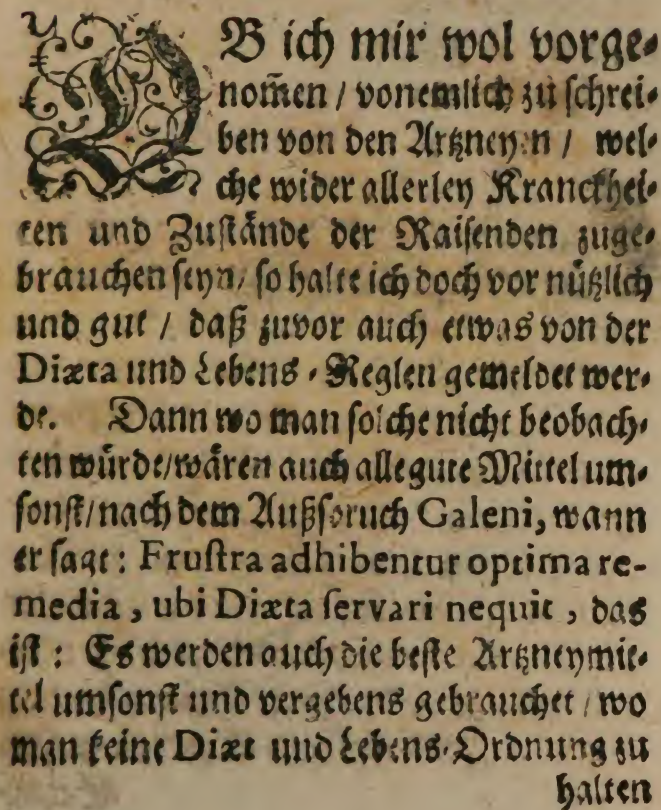 OB ich mir wol vorge-
nom̃en / vonemlich zu schrei-
ben von den Artzneyen / wel-
che wider allerley Kranckhei-
ten und Zustände der Raisenden zuge-
brauchen seyn / so halte ich doch vor nützlich
und gut / daß zuvor auch etwas von der
Diæta und Lebens-Reglen gemeldet wer-
de. Dann wo man solche nicht beobach-
ten würde / wären auch alle gute Mittel um-
sonst / nach dem Außspruch Galeni, wann
er sagt: Frustra adhibentur optima re-
media, ubi Diæta servari nequit, das
ist: Es werden auch die beste Artzneymit-
tel umsonst und vergebens gebrauchet / wo
man keine Diæt und Lebens-Ordnung zu
halten